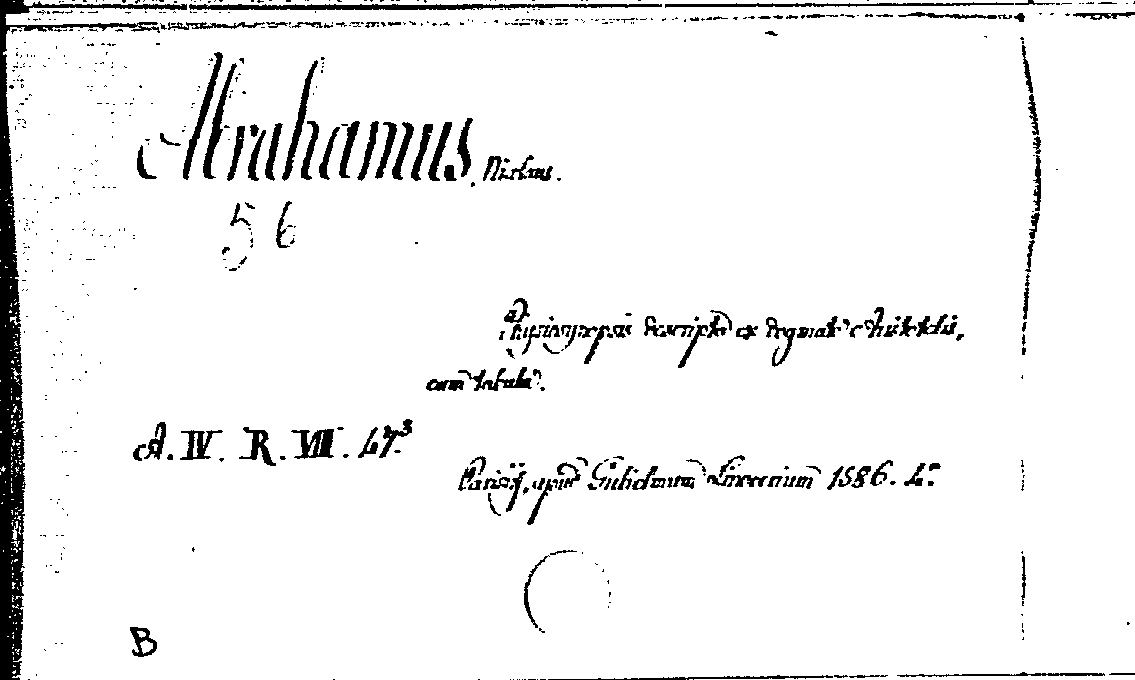 Abrahamus, Nicolaus.
56
descriptio ex dogmate Aristotelis,
cum tabula.
A. IV. R. VIII. 47.³
Parisijs, apud Gulielmum 1586. 4.°
B